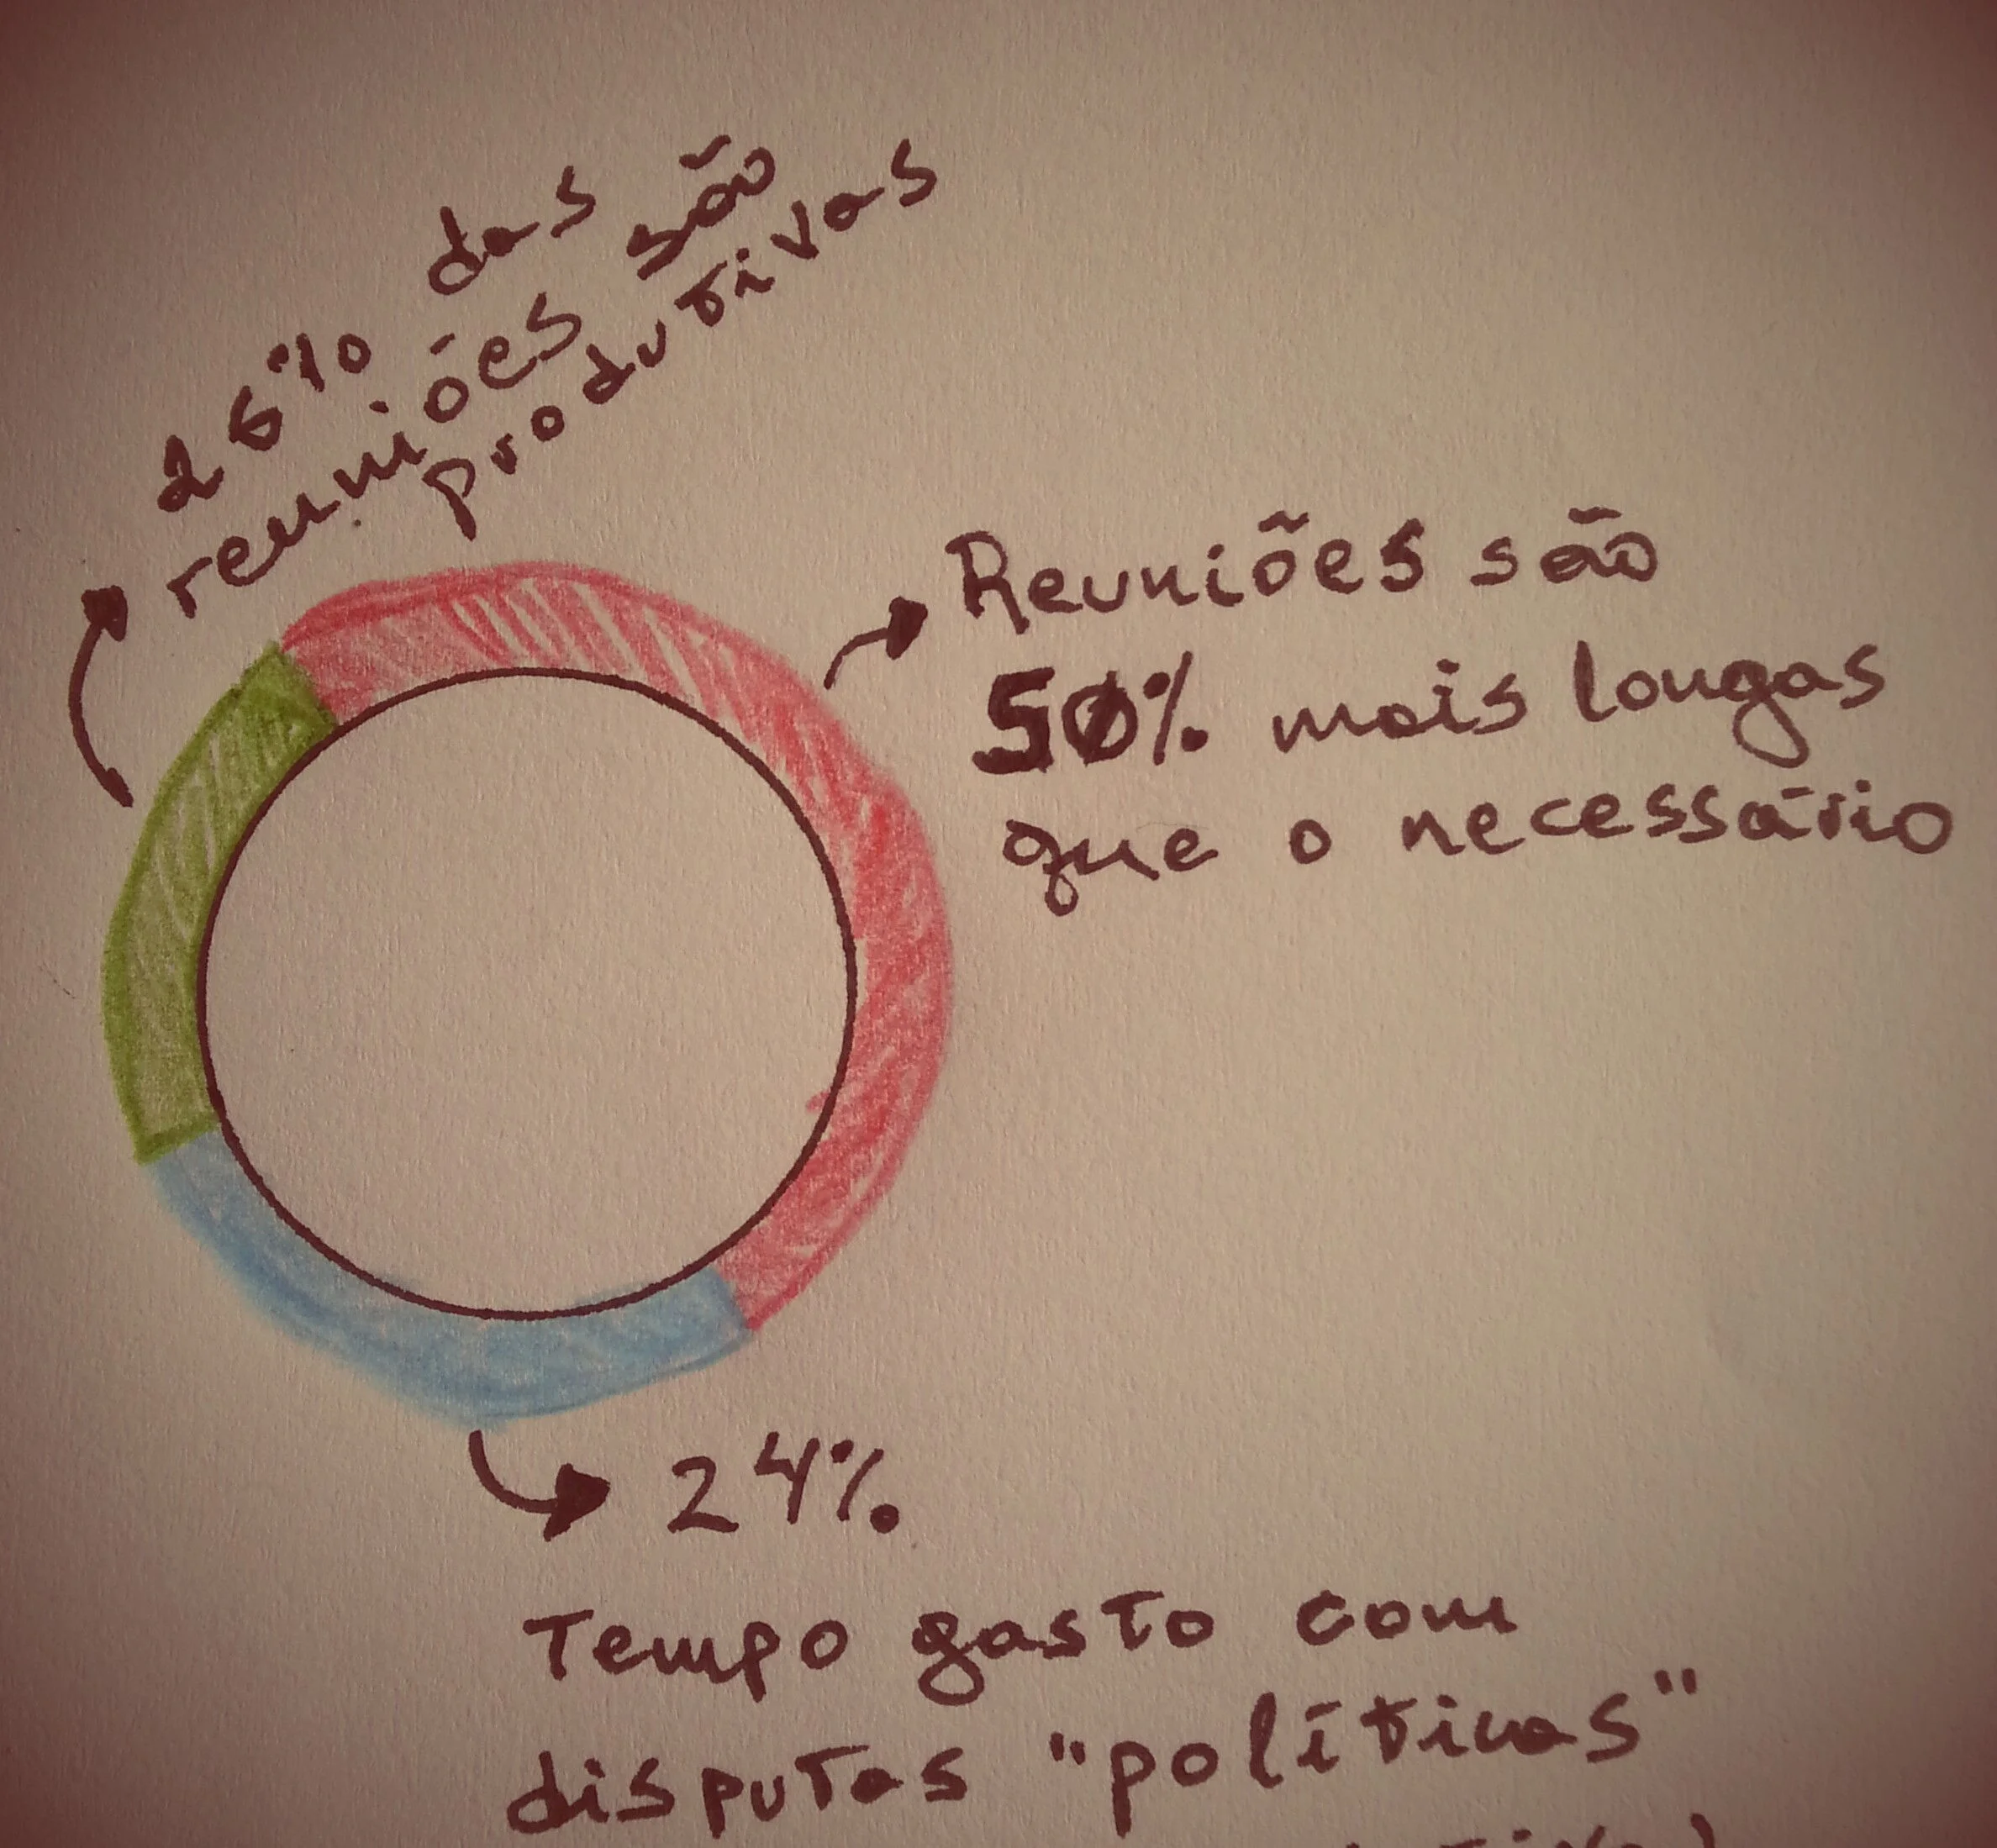 26% das
reuniões são
produtivas
Reuniões são
50% mais longas
que o necessário
24%
Tempo gasto com
disputas "políticas"